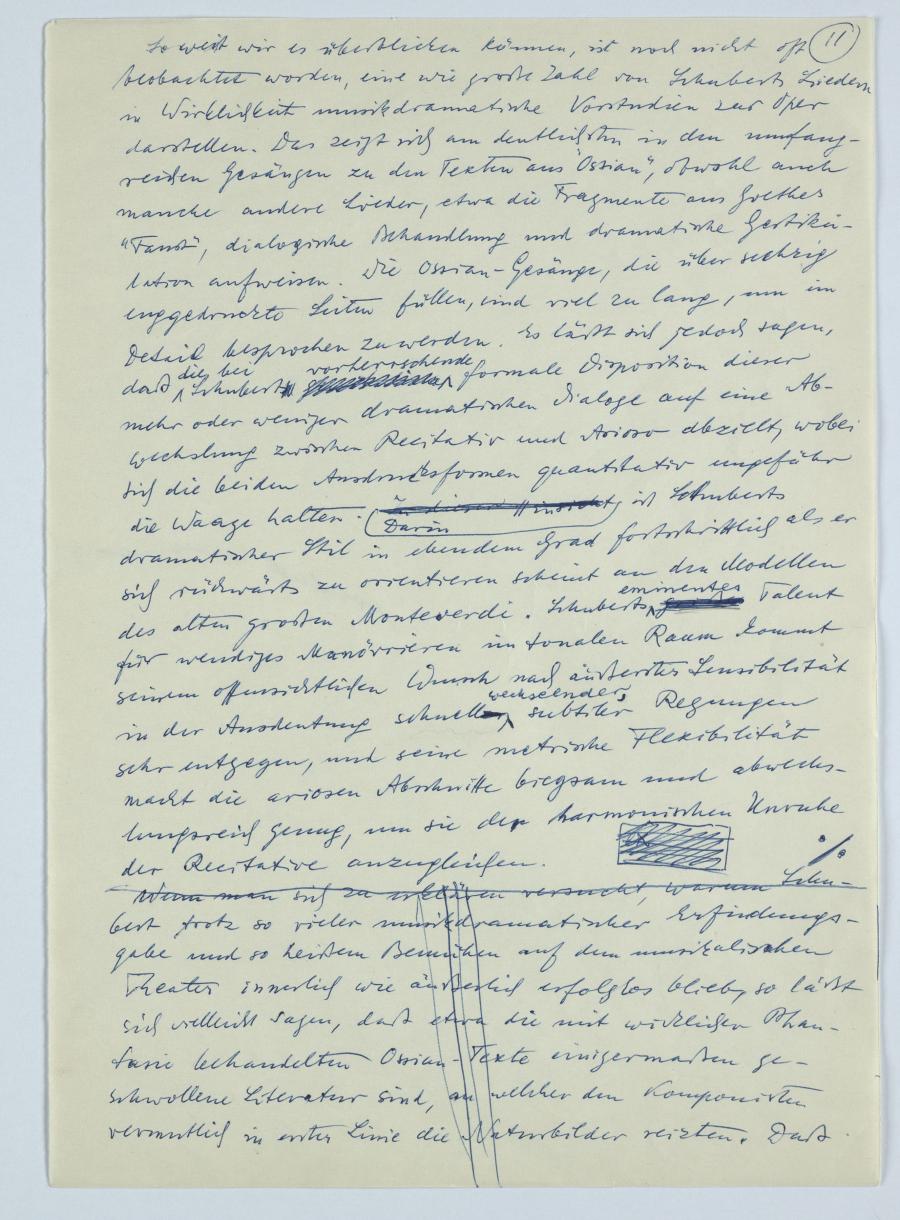 11
So weit wir es überblicken können, ist noch nicht oft
beobachtet worden, eine wie große Zahl von Schuberts Liedern
in Wirklichkeit musikdramatische Vorstudien zur Oper
darstellen. Das zeigt sich am deutlichsten in den umfang-
reichen Gesängen zu den Texten aus "Ossian", obwohl auch
manche andere Lieder, etwa die Fragmente aus Goethes
"Faust", dialogische Behandlung und dramatische Gestiku-
lation aufweisen. Die Ossian-Gesänge, die über sechzig
enggedruckte Seiten füllen, sind viel zu lang, um im
Detail besprochen zu werden. Es läßt sich jedoch sagen,
die bei vorherrschende
daß Schubert formale Disposition dieser
mehr oder weniger dramatischen Dialoge auf eine Ab-
wechslung zwischen Recitativ und Arioso abzielt, wobei
sich die beiden Ausdrucksformen quantitativ ungefähr
die Waage halten. In dieser Hinsicht ist Schuberts
Darin
dramatischer Stil in ebendem Grad fortschrittlich als er
sich rückwärts zu orientieren scheint an den Modellen
eminentes
des alten großen Monteverdi. Schuberts Talent
für wendiges Manövrieren im tonalen Raum kommt
seinem offensichtlichen Wunsch nach äußerster Sensibilität
wechselnder,
in der Ausdeutung schnell subtiler Regungen
sehr entgegen, und seine metrische Flexibilität
macht die ariosen Abschnitte biegsam und abwechs-
lungsreich genug, um sie der harmonischen Unruhe
der Recitative anzugleichen.
Wenn man sich zu erklären versucht, warum Schu-
bert trotz so vieler musikdramatischer Erfindungs-
gabe und so heißem Bemühen auf dem musikalischen
Theater innerlich wie äußerlich erfolglos blieb, so läßt
sich vielleicht sagen, daß etwa die mit wirklicher Phan-
tasie behandelten Ossian-Texte einigermaßen ge-
schwollene Literatur sind, an welcher den Komponisten
vermutlich in erster Linie die Naturbilder reizten. Daß